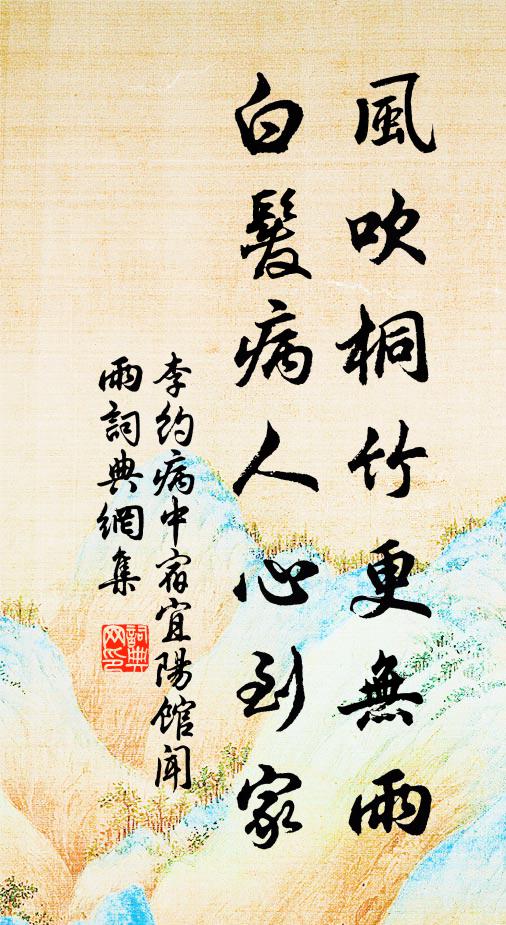 風吹桐竹更無雨
白髮病人心到家
李約病中宿宜陽館聞
雨詞典網集
詞典